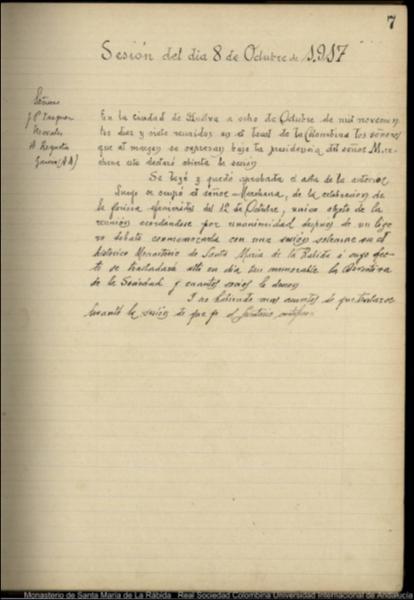 7
Sesión del dia 8 de Octubre de 1917
Señores
J. P. Vazquez
Morales
A. Requena
Garcia (A A)
En la ciudad de Huelva a ocho de Octubre de mil novecien
tos diez y siete reunidos en el local de la Colombina los señores
que al margen se expresan bajo la presidencia del señor Mar
chena este declaró abierta la sesión
Se leyó y quedó aprobada el acta de la anterior
Luego se ocupó el señor Marchena, de la celebracion de
la gloriosa efemérides del 12 de Octubre, unico objeto de la
reunión acordándose por unanimidad despues de un lige
ro debate conmemorarla con una sesión solemne en el
historico Monasterio de Santa Maria de la Rábida á cuyo efec
to se trasladará alli en dia tan memorable la Directiva
de la Sociedad y cuantos socios lo deseen
Y no habiendo mas asuntos de que tratar se
levantó la sesión de que yo el Secretario certifico
Monasterio de Santa María de La Rábida Real Sociedad Colombina Universidad Internacional de Andalucía